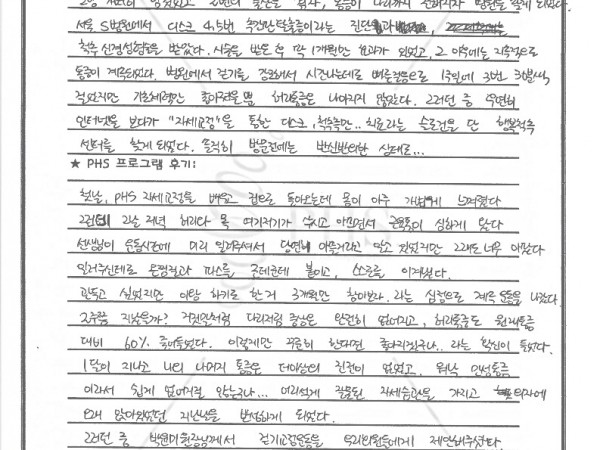 서울 S병원에서 디스크 4,5번 추간판탈출증이라는 진단
척추 신경성형술을 받았다. 시술을 받은 후 약 1개월만 효과가 있었고, 그 이후에는 지속적으로
통증이 계속되었다. 병원에서 걷기를 강요해서 시간나는데로 빠른걸음으로 1주일에 3번 3km씩,
걸었지만 기초체력만 좋아졌을뿐 허리통증은 나아지지 않았다. 그러던 중 우연히
인터넷을 보다가 "자세교정"을 통한 디스크, 척추측만.. 치료라는 슬로건을 단 행복척추
센터를 찾게 되었다. 솔직히 방문전에는 반신반의한 상태로...
★ PHS 프로그램 후기:
첫날, PHS 자세교정을 배우고 집으로 돌아오는데 몸이 아주 가볍게 느껴졌다
그런데 그날 저녁 허리와 목 여기저기가 쑤시고 아프면서 근육통이 심하게 왔다
선생님이 운동시간에 미리 일러주셔서 당연히 아플거라고 알고 있었지만 그래도 너무 아팠다
일러주신데로 온찜질과 파스를 군데군데 붙이고, 스스로를 이겨냈다.
관두고 싶었지만 이왕 하기로 한거 3개월만 참아보자. 라는 심정으로 계속 운동을 나갔다.
2주쯤 지났을가? 거짓말처럼 다리저림 증상은 완전히 없어지고, 허리통증도 원래통증
대비 60% 줄어들었다. 이렇게만 꾸준히 한다면 좋아지겠구나.. 라는 확신이 들었다.
1달이 지나고 나니 나머지 통증은 더이상의 진전이 없었고, 워낙 만성통증
이라서 쉽게 없어지질 않는구나... 여러십게 잘못된 자세습관을 가지고 의자에
오래 앉아있었던 지난날을 반성하게 되었다.
그러던 중 박윤미원장님께서 걷기교정운동을 우리회원들에게 제안해주셨다.